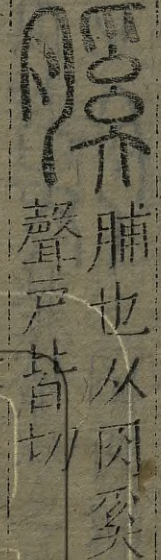 膎
脯也从肉奚
聲戶皆切